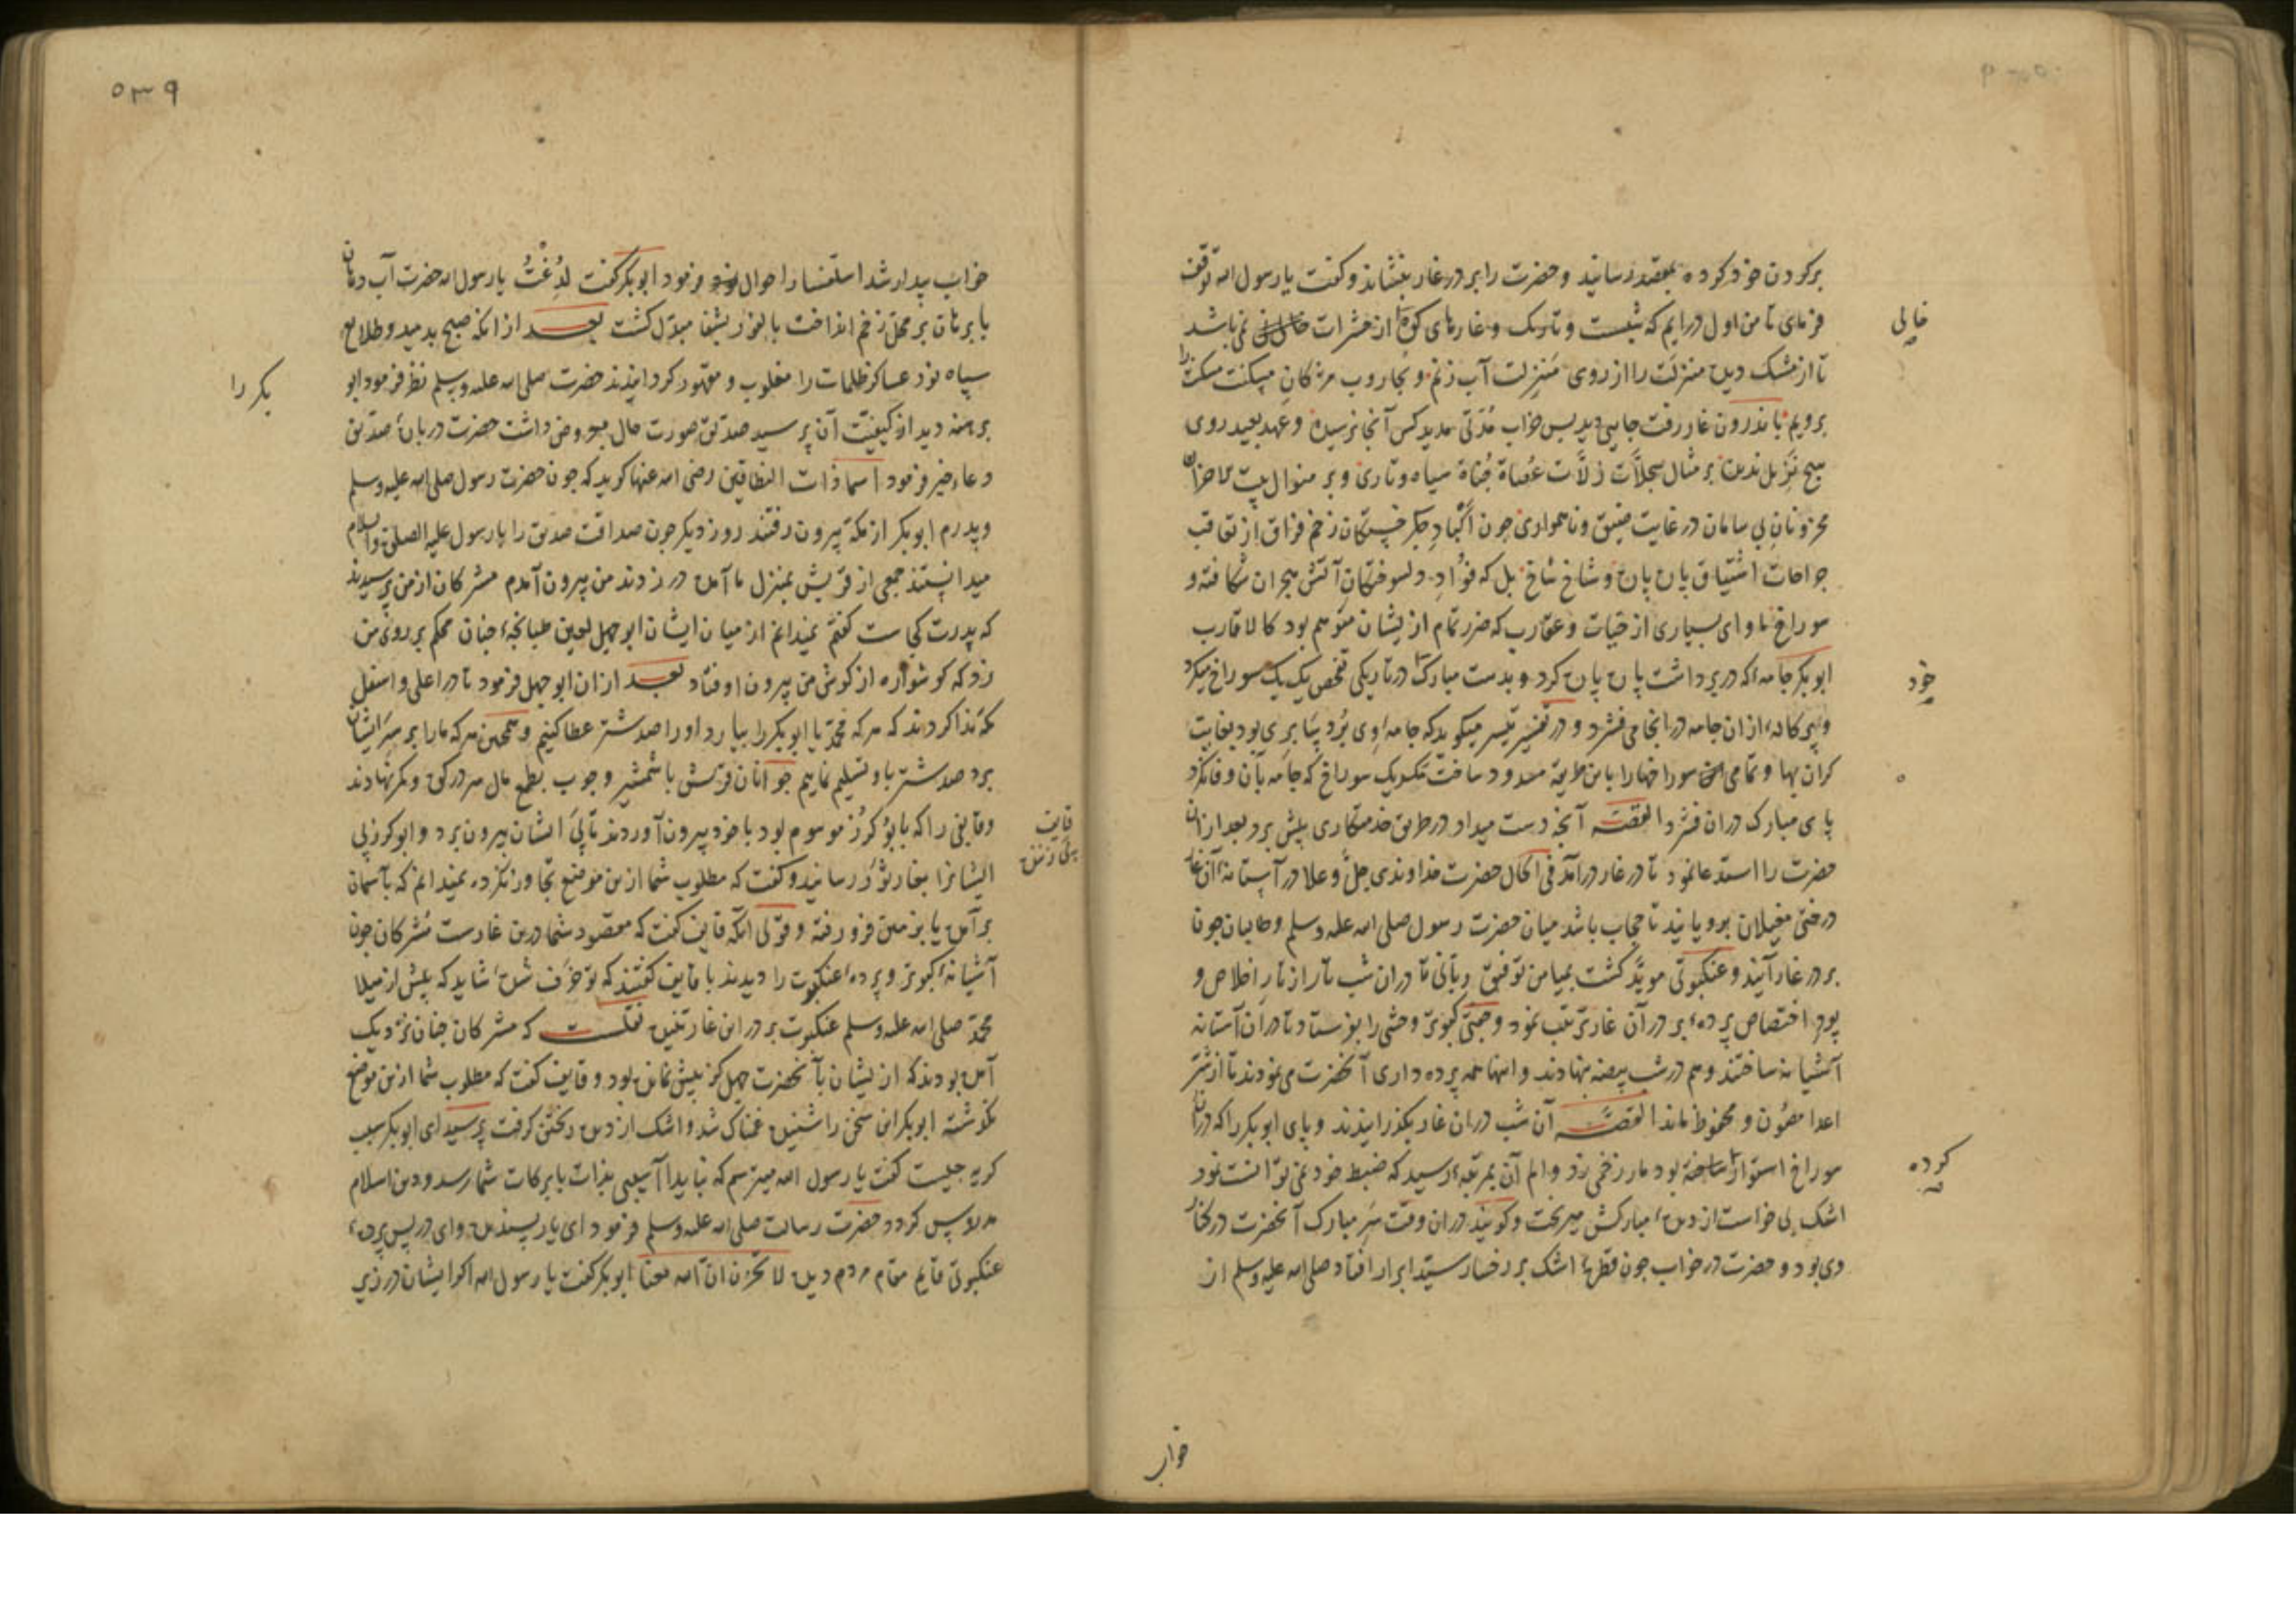 بر کردن خود کرده بمقصد رسانید و حضرت را بر در غار بنشاند و کفت یا رسول الله توقف
فرمای تا من اول درایم که شبست و تاریک و غارهای کوه از حشرات نمی باشد
خالی
تا از مشک دیده منزلت را از روی منزلت آب زنم و بجاروب مژکان مسکنت مسکنت را
برویم باندرون غار رفت جایی دید بس خراب مدتی مدید کس آنجا نرسیده و عهد بعید روی
هیچ ندیده بر مثال سجلات زلات عصاة جناة سیاه و تاری و بر منوال
محزونان بی سامان در غایت ضیق و ناهمواری چون اکباد جکر خستکان زخم فراق از تعاقب
جراحات اشتیاق پاره پاره و شاخ شاخ بل که فؤاد دلسوختکان آتش هجران شکافته و
سوراخ ماوای بسیاری از حیات و عقارب که ضرر تمام از یشان متوهم بود کالاقارب
ابوبکر جامه که در بر داشت پاره پاره کرد و بدست مبارک در تاریکی تفحص یک یک سوراخ میکرد
خود
و هر کاله از ان جامه در انجا می فشرد و در تفسیر تیسیر میکوید که جامه وی برد بس بری بود بغایت
کران بها و تمامی سوراخها را باین طریقه مسدود ساخت مکر یک سوراخ که جامه بآن وفا نکرد
پای مبارک در ان فشرد القصه آنچه دست میداد در طریق خدمتکاری پیش برد بعد از ان
حضرت را استدعا نمود تا در غار درآمد فی الحال حضرت خداوندی جل و علا در آستانه آن غار
درختی مغیلان برویانید تا حجاب باشد میان حضرت رسول صلی الله علیه وسلم و طالبان چون
بر در غار آیند و عنکبوتی موید کشت بمیامن توفیق ربانی تا دران شب تار از تار اخلاص و
پود اختصاص پرده بر در آن غار ترتیب نمود و جفتی کبوتر وحشی را بفرستاد تا دران آستانه
آشیانه ساختند و هم در شب بیضه نهادند و اینها همه پرده داری آنحضرت می نمودند تا از شر
اعدا مصون و محفوظ ماند القصه آن شب دران غار بکذرانیدند و پای ابوبکر را که دران
سوراخ استوار ساخته بود مار زخمی زد و الم آن بمرتبه رسید که ضبط خود نمی توانست نمود
کرده
اشک بی خواست از دیده مبارکش میریخت و کویند دران وقت سر مبارک آنحضرت در کنار
وی بود و حضرت در خواب چون قطره اشک بر رخسار سید ابرار افتاد صلی الله علیه وسلم از
خواب
۵۳۹
خواب بیدار شد استفسار احوال فرمود ابوبکر کفت لدغت یا رسول الله حضرت آب دهان
بابرکات بر محل زخم انداخت بالفور بشفا مبدل کشت بعد از انکه صبح بدمید و طلایع
سپاه نور عساکر ظلمات را مغلوب و مقهور کردانیدند حضرت صلی الله علیه وسلم نظر فرمود ابو
بکر را
برهنه دید از کیفیت آن پرسید صدیق صورت حال معروض داشت حضرت درباره صدیق
دعاء خیر فرمود اسما ذات النطاقین رضی الله عنها کوید که چون حضرت رسول صلی الله علیه وسلم
و پدرم ابوبکر از مکه بیرون رفتند روز دیکر چون صداقت صدیق را با رسول علیه الصلوة والسلام
میدانستند جمعی از قریش بمنزل ما آمده در زدند من بیرون آمدم مشرکان از من پرسیدند
که پدرت کجاست کفتم نمیدانم از میان ایشان ابوجهل لعین طبانجه چنان محکم بر روی من
زد که کوشواره از کوش من بیرون اوفتاد بعد ازان ابوجهل فرمود تا در اعلی و اسفل
مکه ندا کردند که هر که محمد یا ابوبکر را بیارد اورا صد شتر عطا کنیم و همچنین هر که مارا بر سر ایشان
برد صد شتر باو تسلیم نماییم جوانان قریش با شمشیر و چوب بطمع مال سر در کوه و کمر نهادند
و قایفی را که بابو کرز موسوم بود با خود بیرون آوردند تا پی ایشان بیرون برد و ابو کرز پی
قایف
ایشانرا بغار ثور رسانید و کفت که مطلوب شما ازین موضع تجاوز نکرده نمیدانم که بآسمان
بر آمده یا بزمین فرو رفته و قولی آنکه قایف کفت که مقصود شما درین غارست مشرکان چون
آشیانه کبوتر و پرده عنکبوت را دیدند با قایف کفتند که تو خرف شده شاید که پیش از میلاد
محمد صلی الله علیه وسلم عنکبوت بر در این غار تنیده نقلست که مشرکان چنان نزدیک
آمده بودند که از یشان بآنحضرت چهل کز بیش نمانده بود و قایف کفت که مطلوب شما ازین موضع
نکذشته ابوبکر این سخن را شنیده غمناک شد و اشک از دیده ریختن کرفت پرسید ای ابوبکر سبب
کریه چیست کفت یا رسول الله میترسم که نبادا آسیبی بذات بابرکات شما رسد و دین اسلام
مدروس کردد حضرت رسالت صلی الله علیه وسلم فرمود ای یار پسندیده وای در پس پرده
عنکبوتی قایم مقام مردم دیده لا تحزن ان الله معنا ابوبکر کفت یا رسول الله اکر ایشان در زیر